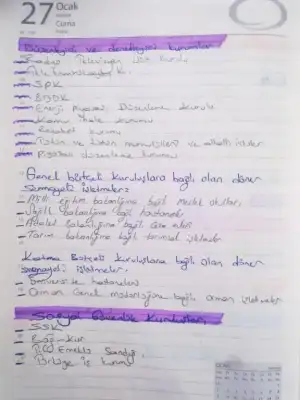 27 Ocak
Cuma
Düzenleyici ve denetleyici kurumlar
Radyo Televizyon Üst Kurulu
SPK
BDDK
Enerji Piyasası Düzenleme Kurulu
Kamu İhale kurumu
Rekabet kurumu
Tütün ve tütün mamulleri ve alkollü içkiler
Piyasası düzenleme kurumu
Genel bütçeli kuruluşlara bağlı olan döner
Sermayeli işletmeler:
Milli eğitim bakanlığına bağlı meslek okulları
Sağlık bakanlığına bağlı hastaneler
Adalet bakanlığına bağlı
Tarım bakanlığına bağlı tarımsal işletmeler
Katma Bütçeli kuruluşlara bağlı olan döner
sermayeli işletmeler:
Üniversite hastaneleri
Orman Genel müdürlüğüne bağlı orman işletmeleri
Sosyal Güvenlik Kuruluşları
SSK
Bağ-Kur
Emekli Sandığı
Türkiye İş Kurumu